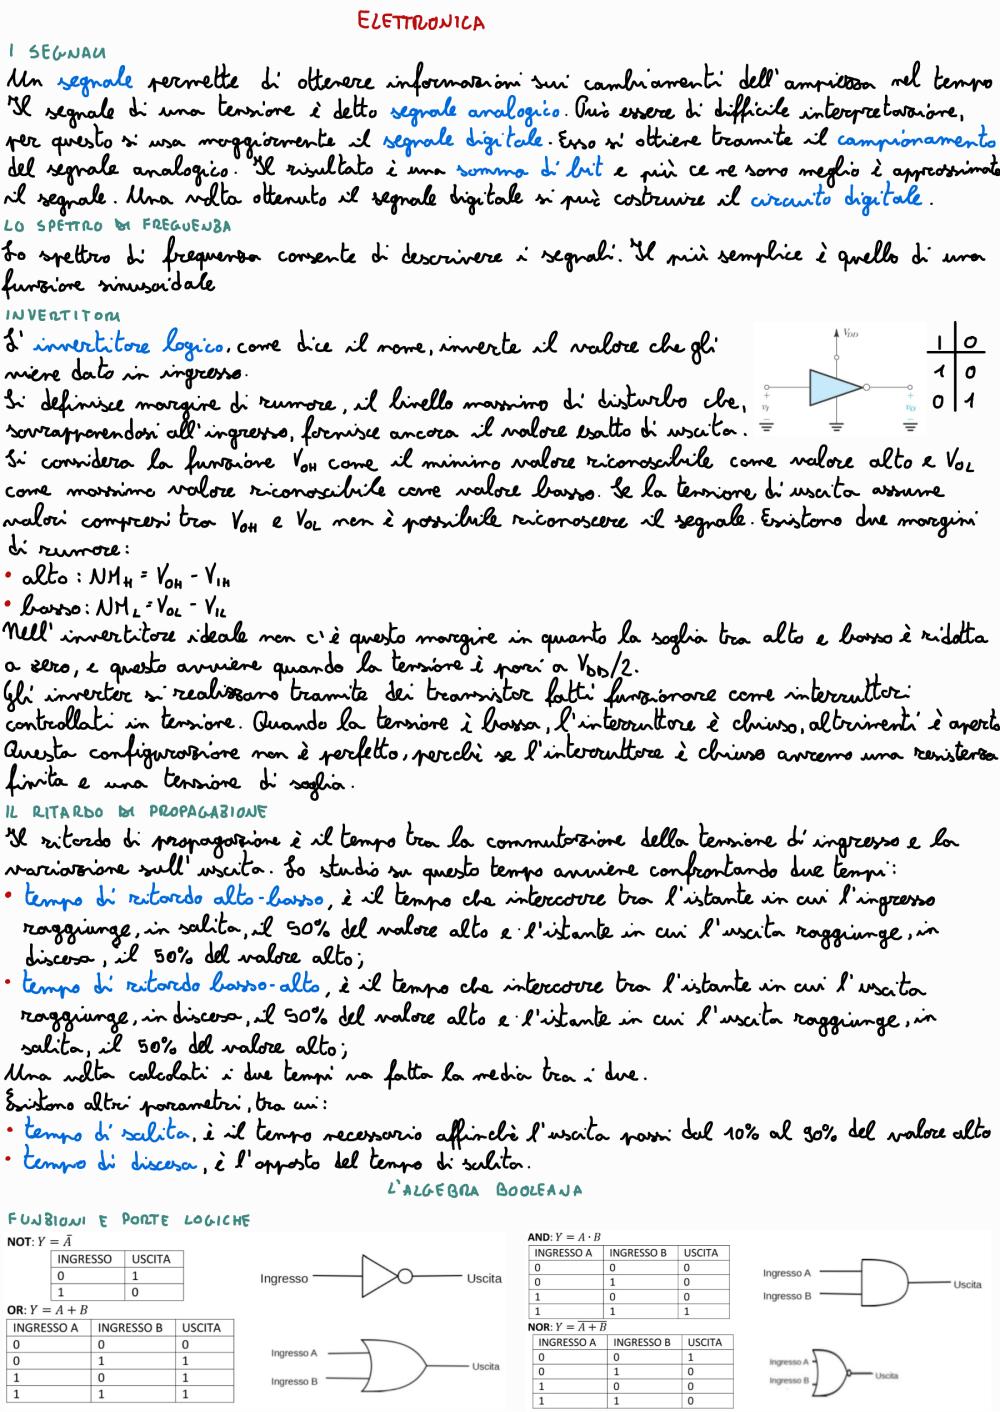 ELETTRONICA
I SEGNALI
Un segnale permette di ottenere informazioni sui cambiamenti dell'ampiezza nel tempo
Il segnale di una tensione è detto segnale analogico. Può essere di difficile interpretazione,
per questo si usa maggiormente il segnale digitale. Esso si ottiene tramite il campionamento
del segnale analogico. Il risultato è una somma di bit e più ce ne sono meglio è approssimato
il segnale. Una volta ottenuto il segnale digitale si può costruire il circuito digitale.
LO SPETTRO DI FREQUENZA
Lo spettro di frequenza consente di descrivere i segnali. Il più semplice è quello di una
funzione sinusoidale
INVERTITORI
L'invertitore logico, come dice il nome, inverte il valore che gli
viene dato in ingresso.
Si definisce margine di rumore, il livello massimo di disturbo che,
sovrapponendosi all'ingresso, fornisce ancora il valore esatto di uscita.
V_DD
+ +
v_I v_O
− −
I O
1 0
0 1
Si considera la funzione V_OH come il minimo valore riconoscibile come valore alto e V_OL
come massimo valore riconoscibile come valore basso. Se la tensione di uscita assume
valori compresi tra V_OH e V_OL non è possibile riconoscere il segnale. Esistono due margini
di rumore:
• alto: NM_H = V_OH - V_IH
• basso: NM_L = V_OL - V_IL
Nell'invertitore ideale non c'è questo margine in quanto la soglia tra alto e basso è ridotta
a zero, e questo avviene quando la tensione è pari a V_DD/2.
Gli inverter si realizzano tramite dei transistor fatti funzionare come interruttori
controllati in tensione. Quando la tensione è bassa, l'interruttore è chiuso, altrimenti è aperto
Questa configurazione non è perfetto, perchè se l'interruttore è chiuso avremo una resistenza
finita e una tensione di soglia.
IL RITARDO DI PROPAGAZIONE
Il ritardo di propagazione è il tempo tra la commutazione della tensione di ingresso e la
variazione sull'uscita. Lo studio su questo tempo avviene confrontando due tempi:
• tempo di ritardo alto-basso, è il tempo che intercorre tra l'istante in cui l'ingresso
raggiunge, in salita, il 50% del valore alto e l'istante in cui l'uscita raggiunge, in
discesa, il 50% del valore alto;
• tempo di ritardo basso-alto, è il tempo che intercorre tra l'istante in cui l'uscita
raggiunge, in discesa, il 50% del valore alto e l'istante in cui l'uscita raggiunge, in
salita, il 50% del valore alto;
Una volta calcolati i due tempi va fatta la media tra i due.
Esistono altri parametri, tra cui:
• tempo di salita, è il tempo necessario affinchè l'uscita passi dal 10% al 90% del valore alto
• tempo di discesa, è l'opposto del tempo di salita.
L'ALGEBRA BOOLEANA
FUNZIONI E PORTE LOGICHE
NOT: Y = Ā
INGRESSO USCITA
0 1
1 0
Ingresso Uscita
OR: Y = A + B
INGRESSO A INGRESSO B USCITA
0 0 0
0 1 1
1 0 1
1 1 1
Ingresso A
Ingresso B
Uscita
AND: Y = A · B
INGRESSO A INGRESSO B USCITA
0 0 0
0 1 0
1 0 0
1 1 1
Ingresso A
Ingresso B
Uscita
NOR: Y = A̅ ̅+̅ ̅B̅
INGRESSO A INGRESSO B USCITA
0 0 1
0 1 0
1 0 0
1 1 0
Ingresso A
Ingresso B
Uscita